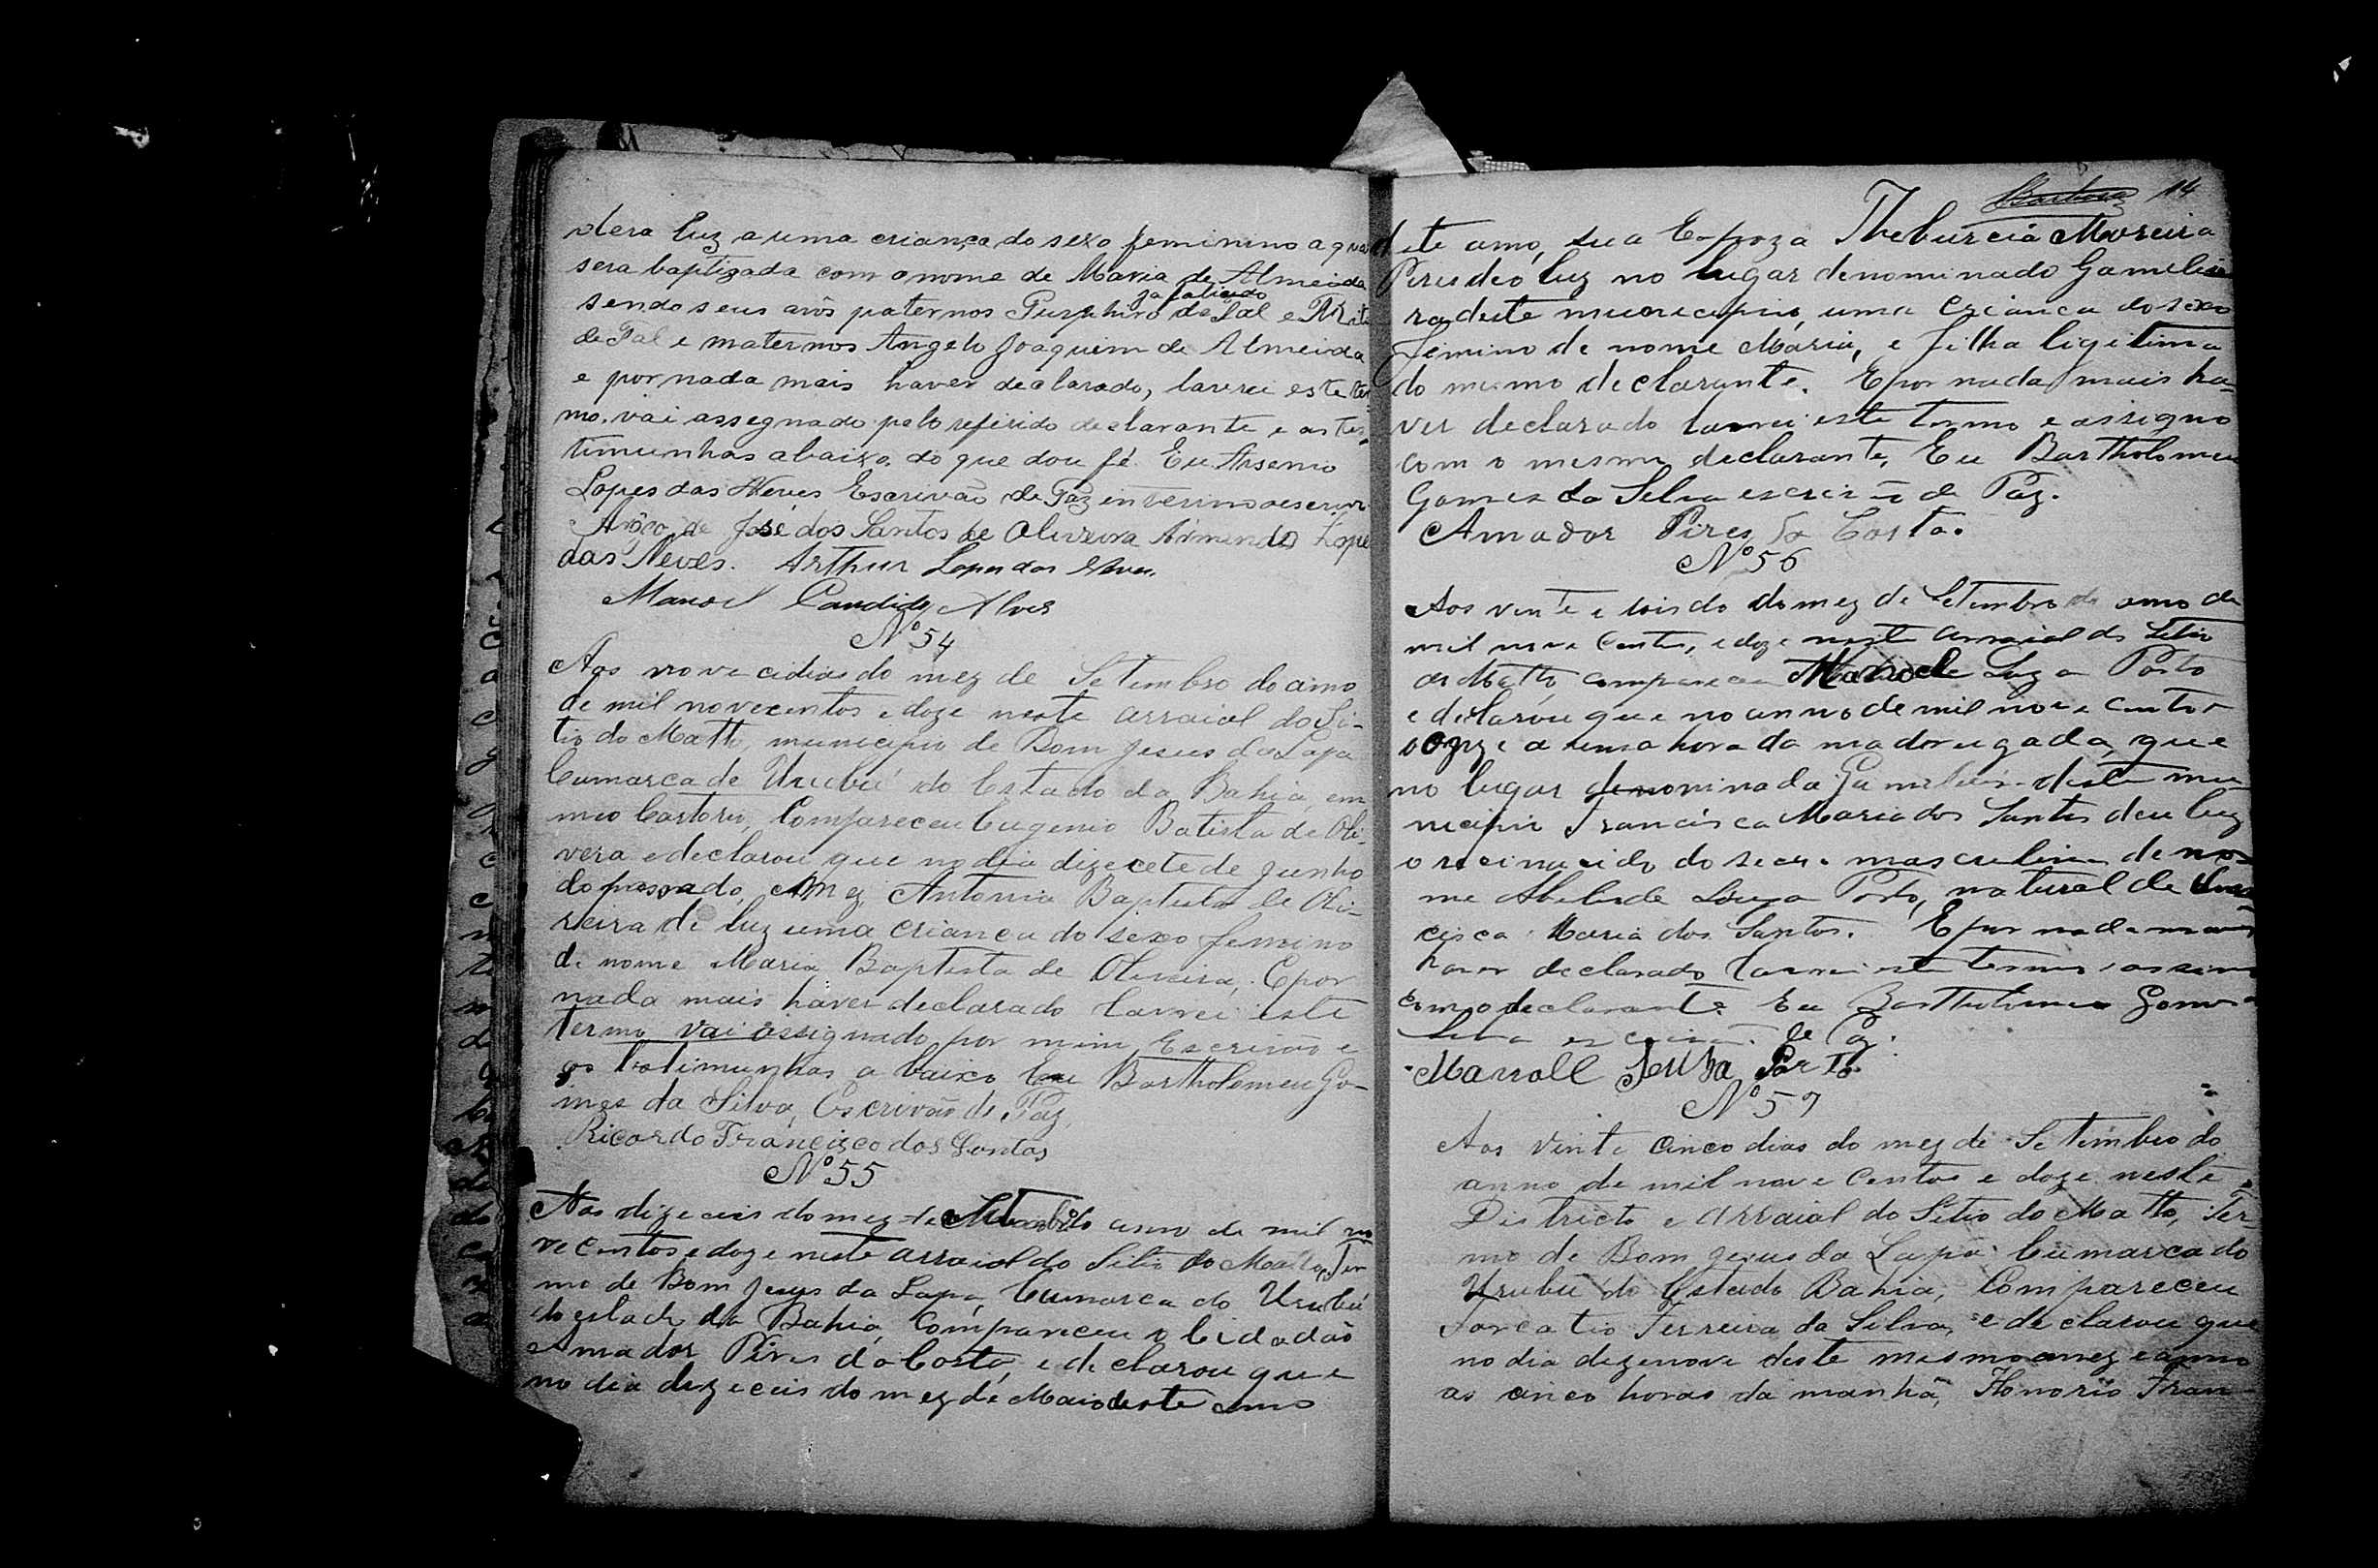 dera luz a uma criança do sexo feminino a qual
sera baptizada com o nome de Maria de Almeida
sendo seus avôs paternos Purphiro de Tal e
já falicido
de Tal e maternos Angelo Joaquim de Almeida
e por nada mais haver declarado, lavrei este ter-
mo, vai assegnado pelo referido declarante e as tes-
timunhas abaixo, do que dou fé. Eu Arsenio
Lopes das Neves Escrivão de Paz enterino escrevi
Arôgo de José dos Santos de Oliveira Armindo Lope
das Neves. Arthur Lopes das Neves.
Manoel Candido Alves
Nº 54
Aos nove cidias do mez de Setembro do anno
de mil novecentos e doze neste arraial do Si-
tio do Matto, municipio de Bom Jesus da Lapa
Cumarca de Urubú do Estado da Bahia, em
meo Cartorio, Compareceu Eugenio Batista de Oli-
vera e declarou que no dia dizecete de Junho
do passado, Antonia Baptista de Oli-
veira de luz uma crianca do sexo femino
de nome Maria Baptista de Oliveira, E por
nada mais haver declarado lavrei este
termo vai assignado por mim, Escrivão e
as testimunhas a baixo Eu Bartholomeu Go-
mes da Silva, Escrivão de Paz,
Ricardo Francisco dos Santos
Nº 55
Aos dizeceis do mez de Setembro do anno de mil no
vecentos e doze neste arraial do Sitio do Matto, Ter
mo de Bom Jesus da Lapa, Cumarca do Urubú
do estado da Bahia, Compareceu o Cidadão
Amador Pires da Costa, e declarou que
no dia dezeceis do mez de Maio deste anno
14
dete anno, sua Espoza Theburcia Moreira
Pires deo luz no lugar denominado Gamelei
ra deste municipio, uma criança do sexo
femino de nome Maria, e filha ligitima
do mesmo declarante. E por nada mais ha-
ver declarado lavrei este termo e assigno
com o mesmo declarante, Eu Bartholomeu
Gomes da Silva escrivão de Paz.
Amador Pires da Costa.
Nº 56
Aos vente e dois do do mez de Setembro do anno de
mil nove centos, e doze neste arraial do Sitio
do Matto, compareceu Manoel Souza Porto
e declarou que no anno de mil nove centos
e a uma hora da madrugada, que
no lugar denominada Gameleira deste mu-
nicipio Francisca Maria dos Santos deu luz
o recinacido do sexo mascculino de no-
me de Souza Porto, natural de Fran
cisca Maria dos Santos. E por nada mais
haver declarado lavrei este termo e assino
como declarante Eu Bartholomeu Gomes
Silva escrivão de Paz.
Manoll Souza Porto
Nº 57
Aos Vinte cinco dias do mez de Setembro do
anno de mil nove Centos e doze neste
Districto e arraial do Sitio do Matto, Ter-
mo de Bom Jesus da Lapa Cumarca do
Urubú do Estado Bahia, Compareceu
Torcatio Ferreira da Silva, e declarou que
no dia dezenove deste mesmo mez e anno
as cinco horas da manhã, Honorio Fran-